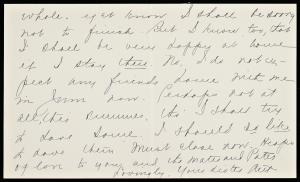 whole. I know I shall be sorry
not to finish. But I know too, that
I shall be very happy at home
if I stay there. No, I do not ex-
pect any friends home with me
in June now. Perhaps not at
all this summer. tho. I shall try
to have some. I should so like
to have them. Must close now. Heaps
of love to you and the mater and Pater.
Lovingly, Your sister